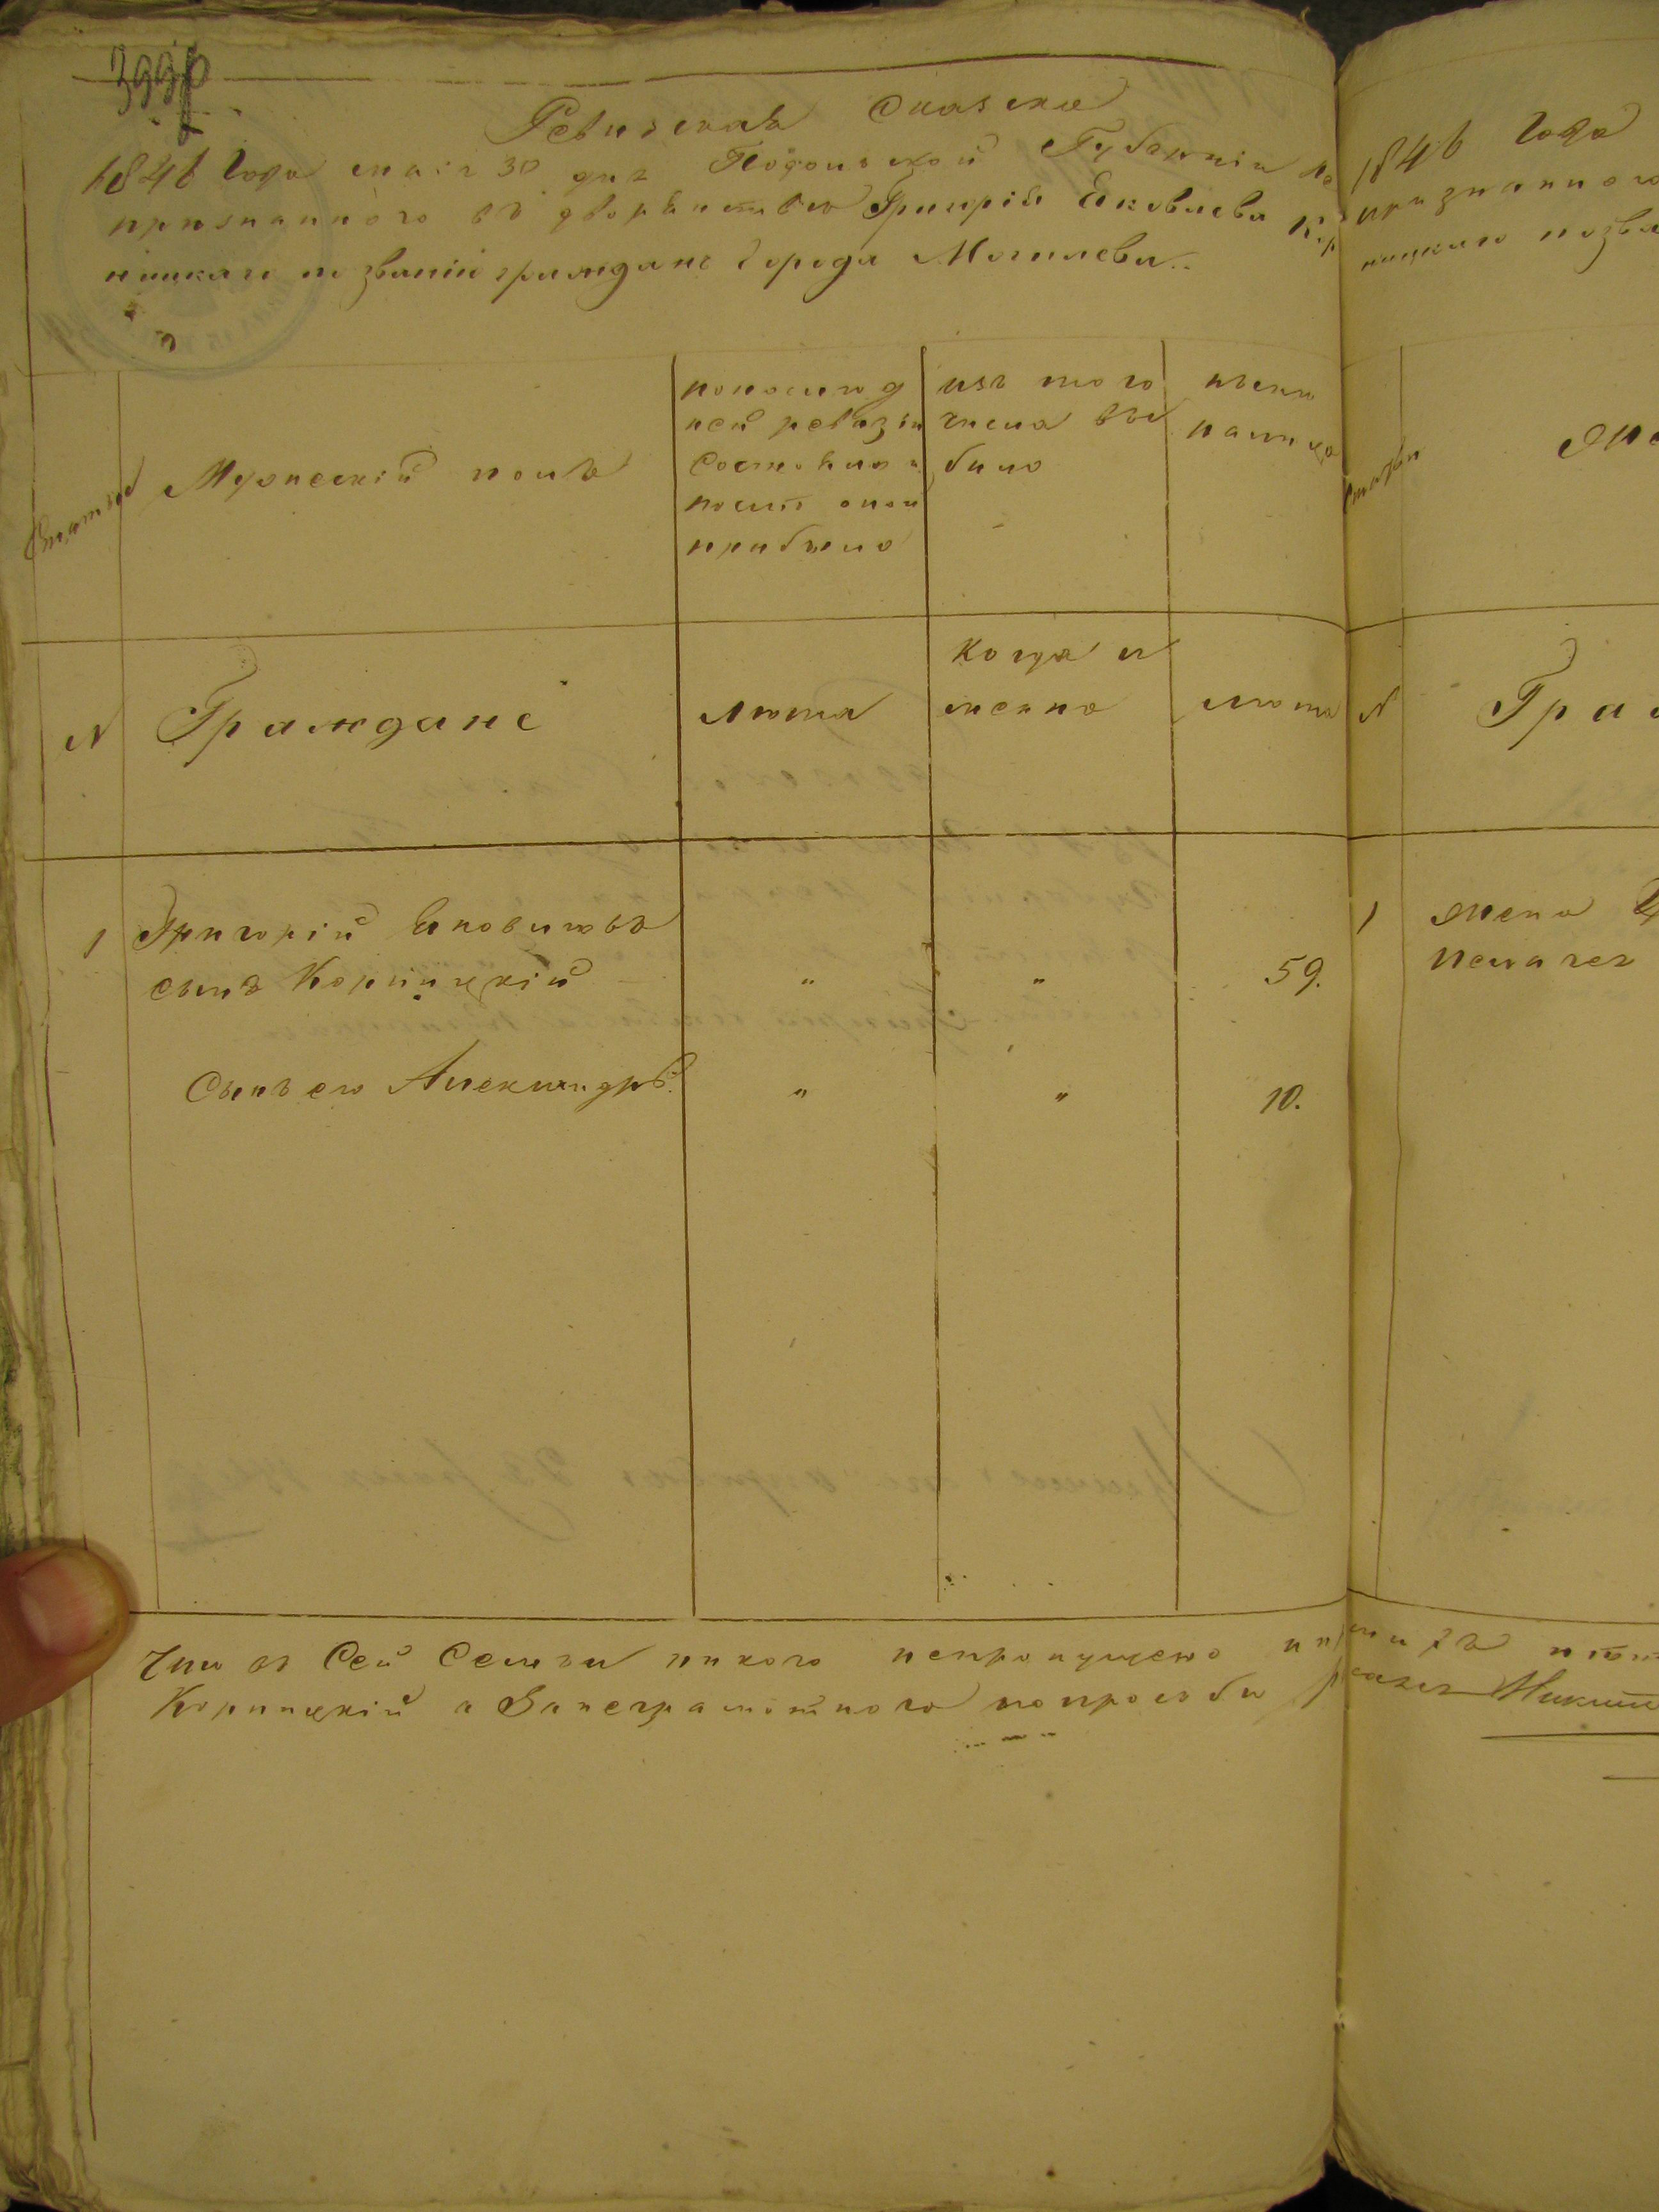 Ревизская сказка
1846 года маія 30 дня Подольской Губерніи не
признанного въ дворянство Григорія Яковлева Кор
ницкаго по званію граждане города Могилева
Мужескій полъ
по послед
ней ревизіи
состояло и
после оной
прибыло
изъ того
числа вы
было
ныне
налицо
N Граждане
лета
когда и
менно
лета
1 Григорій Яковлевъ
сынъ Корницкій " " 59.
Сынъ его Александръ " " 10.
Что въ сей семьи никого непропущено
Корницкій а за неграмотного по просьбы
1846 года
признанного
ницкаго по зва
N Гра
1 Жена
Пелагея